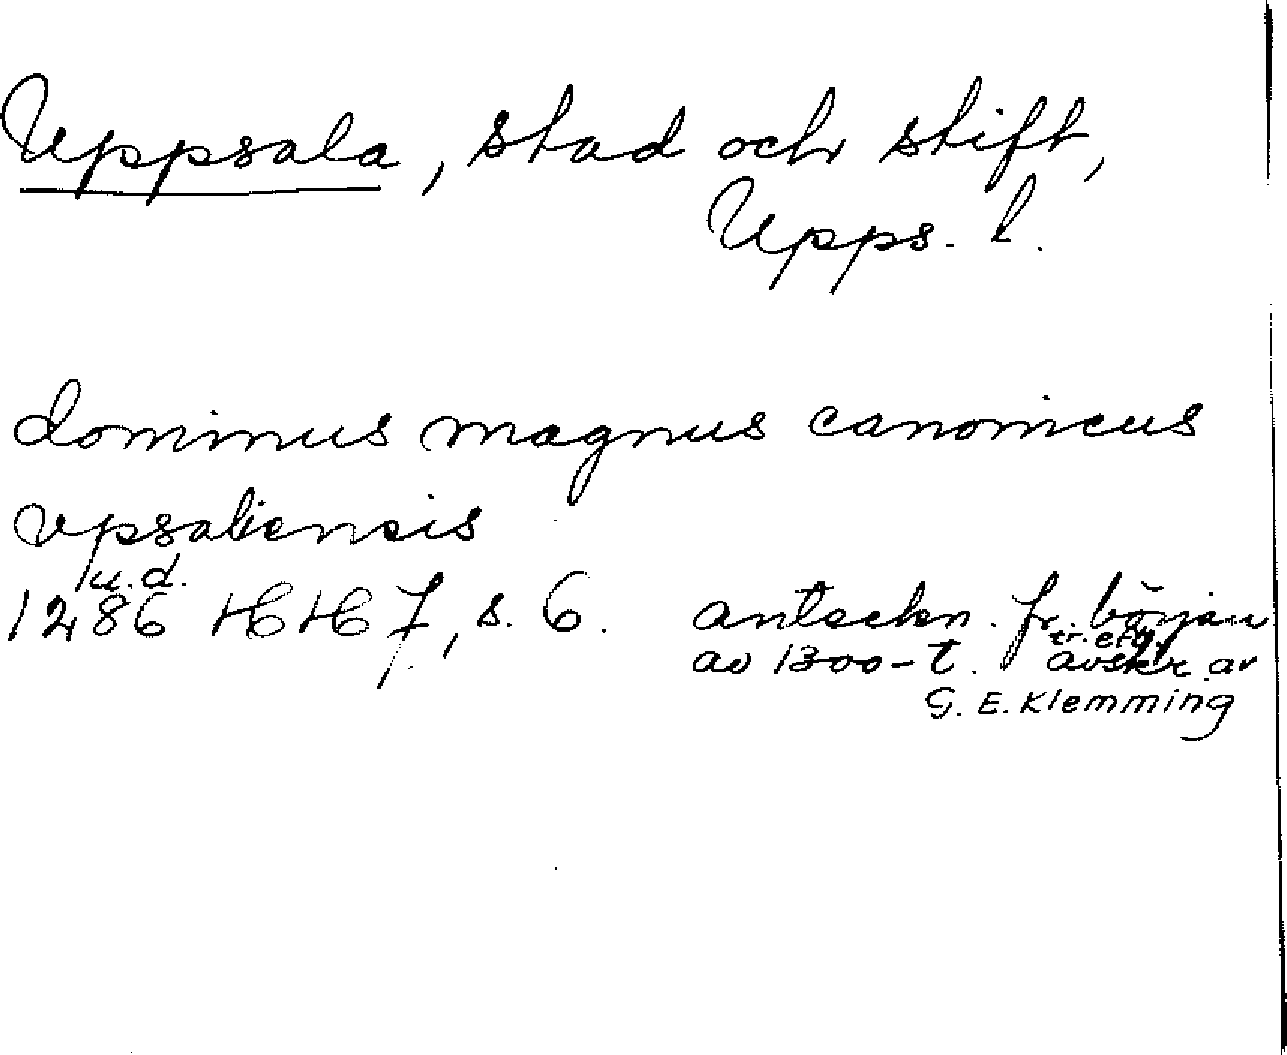 Uppsala, stad och stift,
Upps. l.
dominus magnus canonicus
vpsaliensis
u.d.
1286 HH 7, s. 6. anteckn. fr. början
av 1300-t. tr. eft. avskr. av
G. E. Klemming